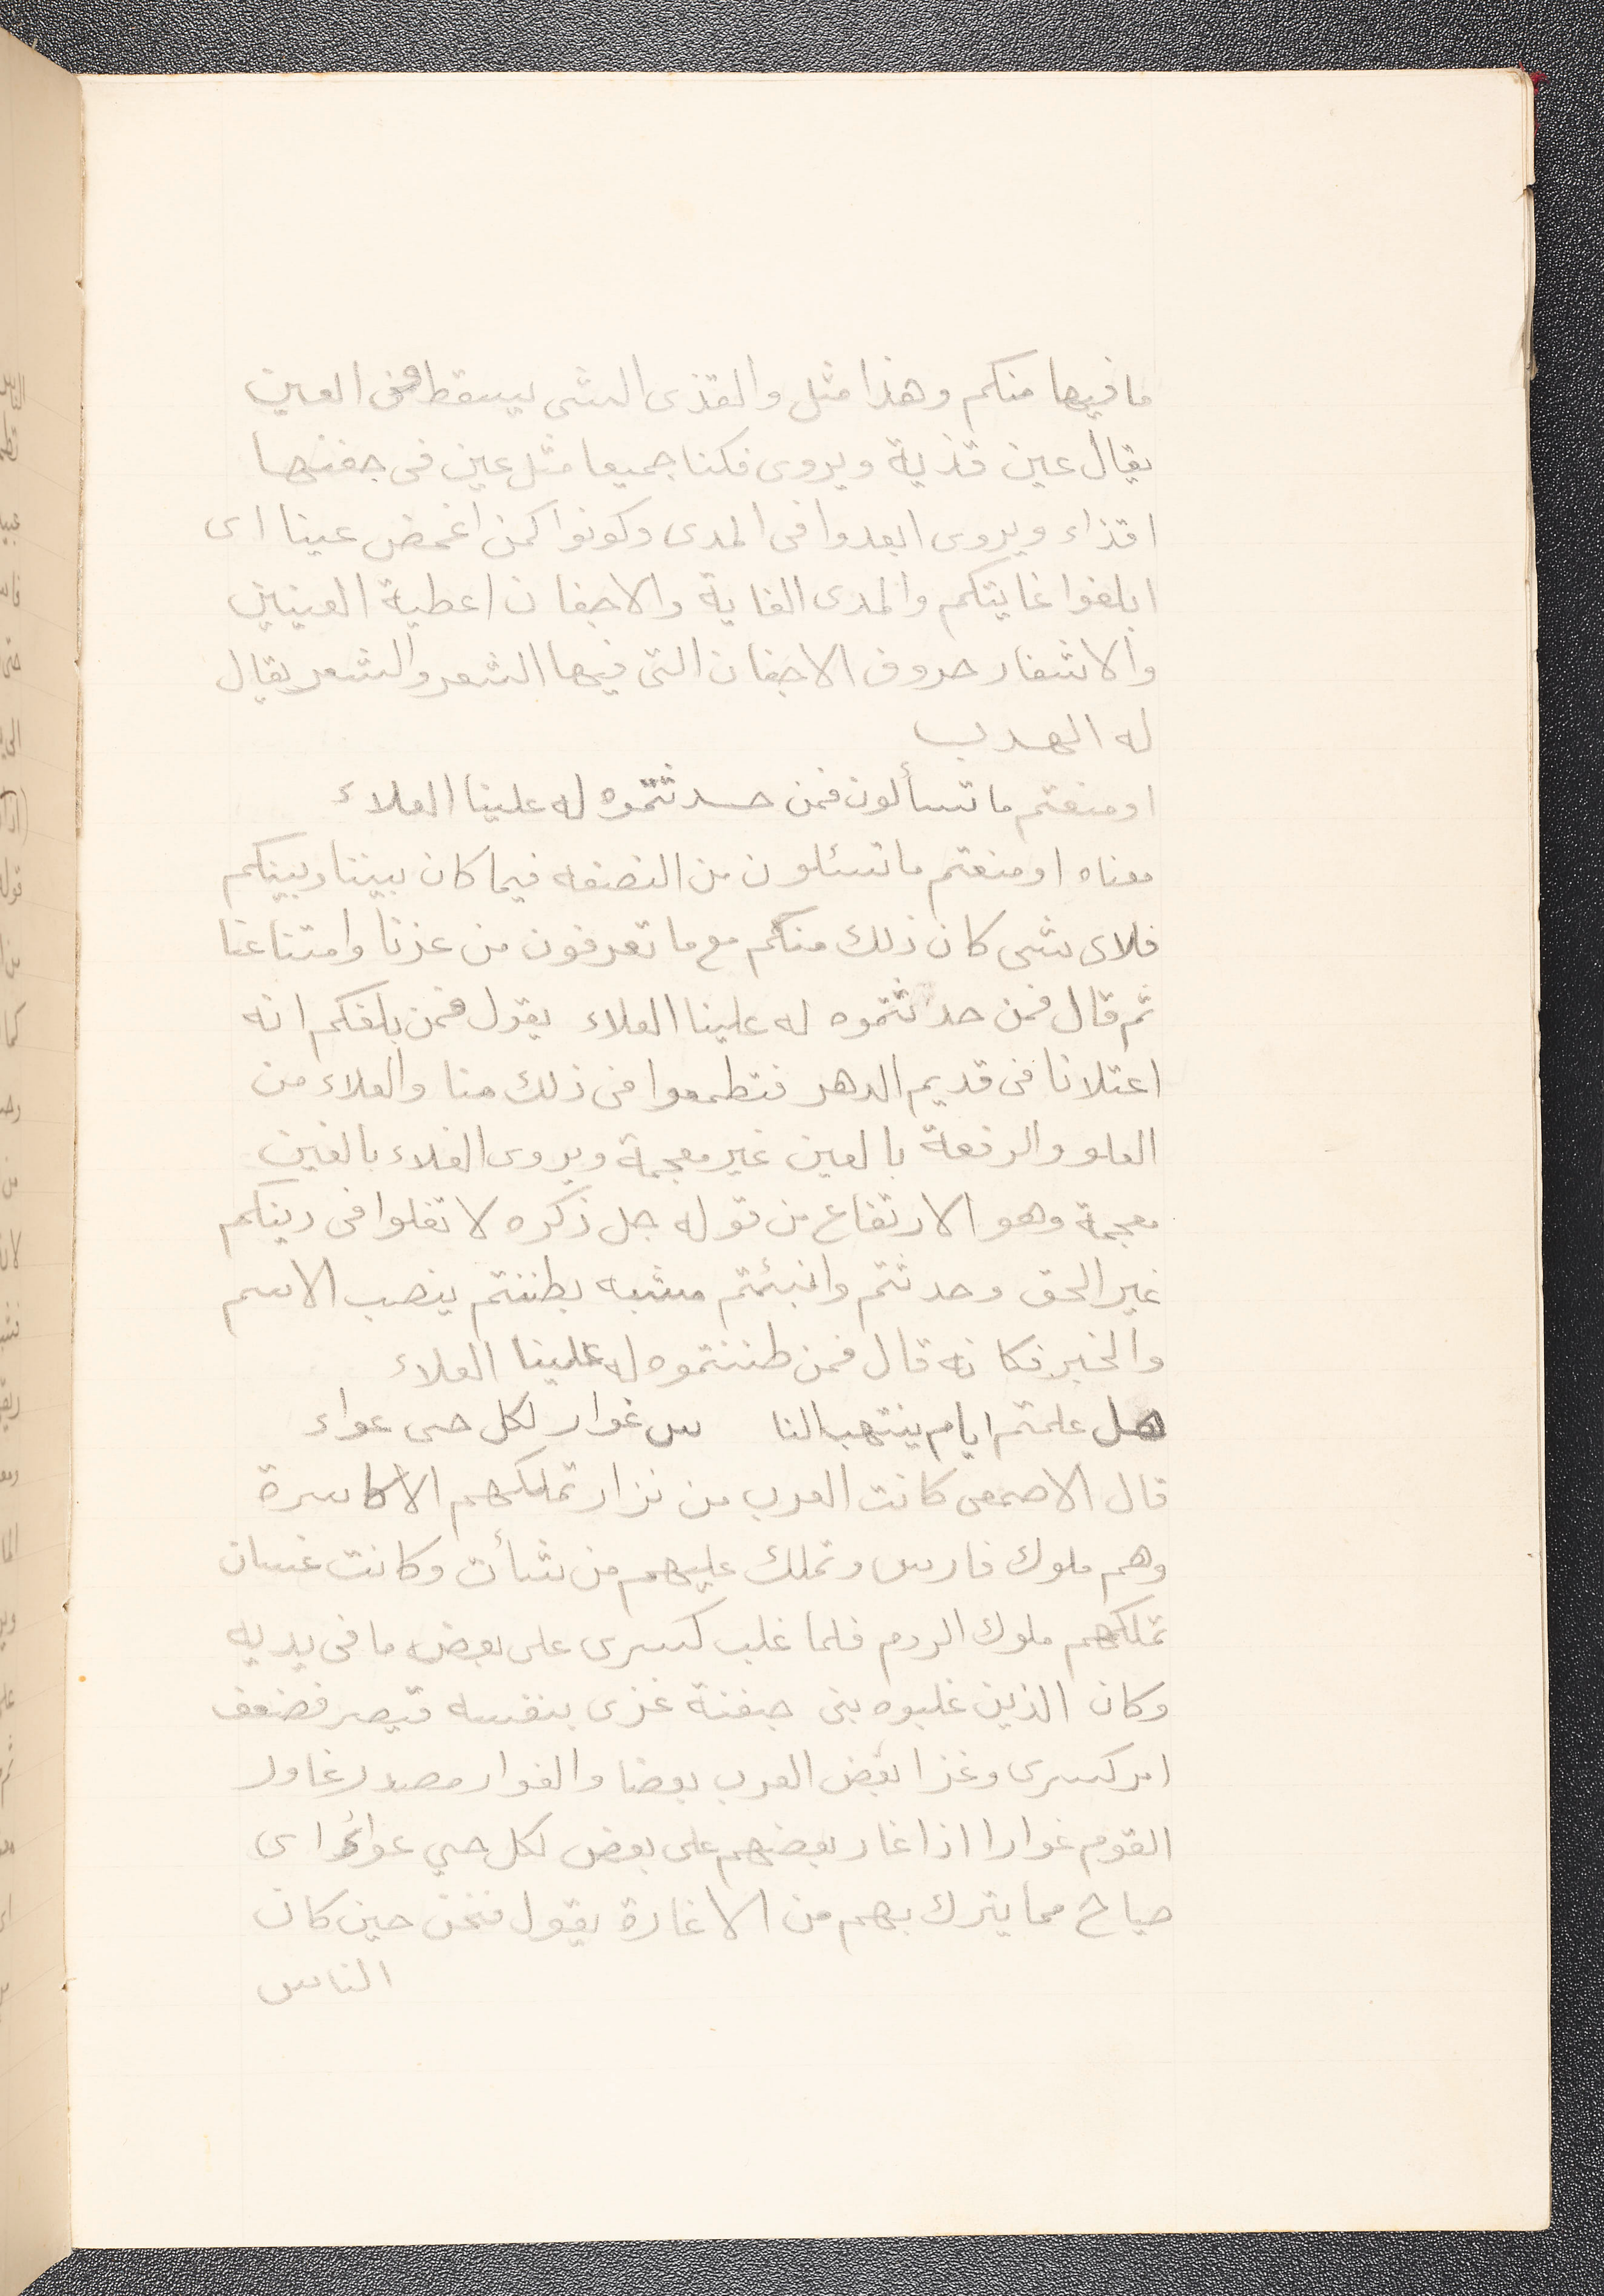 ما فيها منكم وهذا مثل والقذى الشى يسقط فى العين
يقال عين قذية ويروى فكنا جميعا مثل عين فى جفنها
اقذاء ويروى ابعدوا فى المدى وكونوا كمن اغمض عينا اى
ابلغوا غايتكم والمدى الغاية والاجفان اغطية العينين
والاشفار حروف الاجفان التى فيها الشعر والشعر يقال
له الهدب
او منعتم ما تسألون فمن حدثتموه له علينا العلاء
معناه او منعتم ما تسئلون من النصفه فيما كان بيننا وبينكم
فلاى شى كان ذلك منكم مع ما تعرفون من عزنا وامتناعنا
ثم قال فمن حدثتموه له علينا العلاء يقول فمن بلغكم انه
اعتلانا فى قديم الدهر فتطمعوا فى ذلك منا والعلاء من
العلو والرفعة بالعين غير معجمة ويروى الغلاء بالغين
معجمة وهو الارتفاع من قوله جل ذكره لا تغلوا فى دينكم
غير الحق وحدثتم وانبئتم مشبه بظننتم ينصب الاسم
والخبر فكانه قال فمن ظننتموه له علينا العلاء
هل علمتم ايام ينتهب النا س غوار لكل حى عواء
قال الاصمعى كانت العرب من نزار تملكهم الاكاسرة
وهم ملوك فارس وتملك عليهم من شأت وكانت غسان
تملكهم ملوك الروم فلما غلب كسرى على بعض ما فى يديه
وكان الذين غلبوه بنى جفنة غزى بنفسه قيصر فضعف
امر كسرى وغزا بعض العرب بعضا والغوار مصدر غاور
القوم غوارا اذا غار بعضهم على بعض لكل حي عواء اى
صياح مما يترك بهم من الاغارة يقول فنحن حين كان
الناس